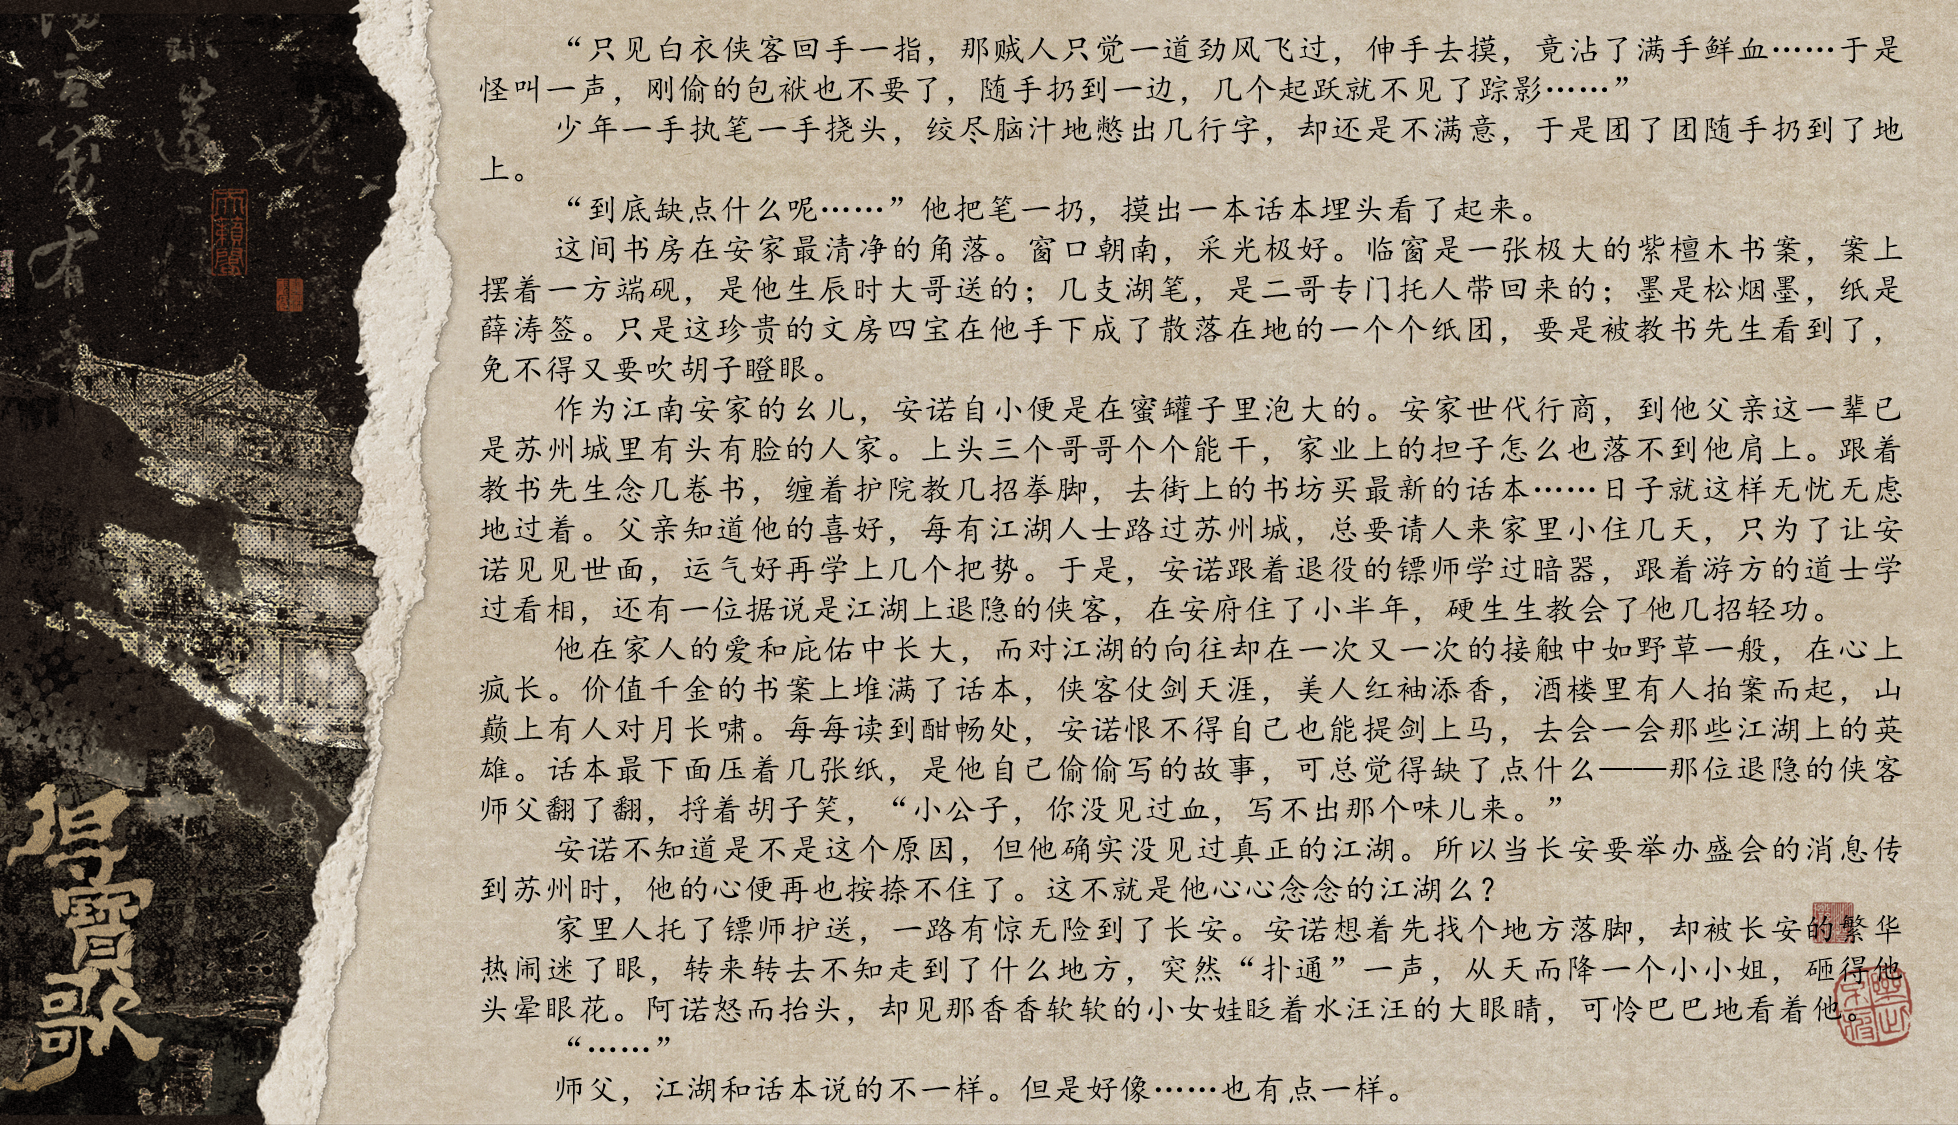 “只见白衣侠客回手一指，那贼人只觉一道劲风飞过，伸手去摸，竟沾了满手鲜血……于是
怪叫一声，刚偷的包袱也不要了，随手扔到一边，几个起跃就不见了踪影……”
少年一手执笔一手挠头，绞尽脑汁地憋出几行字，却还是不满意，于是团了团随手扔到了地
上。
“到底缺点什么呢……”他把笔一扔，摸出一本话本埋头看了起来。
这间书房在安家最清净的角落。窗口朝南，采光极好。临窗是一张极大的紫檀木书案，案上
摆着一方端砚，是他生辰时大哥送的；几支湖笔，是二哥专门托人带回来的；墨是松烟墨，纸是
薛涛签。只是这珍贵的文房四宝在他手下成了散落在地的一个个纸团，要是被教书先生看到了，
免不得又要吹胡子瞪眼。
作为江南安家的幺儿，安诺自小便是在蜜罐子里泡大的。安家世代行商，到他父亲这一辈已
是苏州城里有头有脸的人家。上头三个哥哥个个能干，家业上的担子怎么也落不到他肩上。跟着
教书先生念几卷书，缠着护院教几招拳脚，去街上的书坊买最新的话本……日子就这样无忧无虑
地过着。父亲知道他的喜好，每有江湖人士路过苏州城，总要请人来家里小住几天，只为了让安
诺见见世面，运气好再学上几个把势。于是，安诺跟着退役的镖师学过暗器，跟着游方的道士学
过看相，还有一位据说是江湖上退隐的侠客，在安府住了小半年，硬生生教会了他几招轻功。
他在家人的爱和庇佑中长大，而对江湖的向往却在一次又一次的接触中如野草一般，在心上
疯长。价值千金的书案上堆满了话本，侠客仗剑天涯，美人红袖添香，酒楼里有人拍案而起，山
巅上有人对月长啸。每每读到酣畅处，安诺恨不得自己也能提剑上马，去会一会那些江湖上的英
雄。话本最下面压着几张纸，是他自己偷偷写的故事，可总觉得缺了点什么——那位退隐的侠客
师父翻了翻，捋着胡子笑，“小公子，你没见过血，写不出那个味儿来。”
安诺不知道是不是这个原因，但他确实没见过真正的江湖。所以当长安要举办盛会的消息传
到苏州时，他的心便再也按捺不住了。这不就是他心心念念的江湖么？
家里人托了镖师护送，一路有惊无险到了长安。安诺想着先找个地方落脚，却被长安的繁华
热闹迷了眼，转来转去不知走到了什么地方，突然“扑通”一声，从天而降一个小小姐，砸得他
头晕眼花。阿诺怒而抬头，却见那香香软软的小女娃眨着水汪汪的大眼睛，可怜巴巴地看着他。
“……”
师父，江湖和话本说的不一样。但是好像……也有点一样。
寶歌